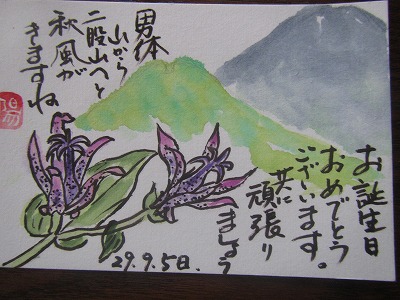 男体
山から
二股山へと
秋風が
きますね
陽
お誕生日
おめでとう
ございます。
共に
頑張り
ましょう
29.9.5日.